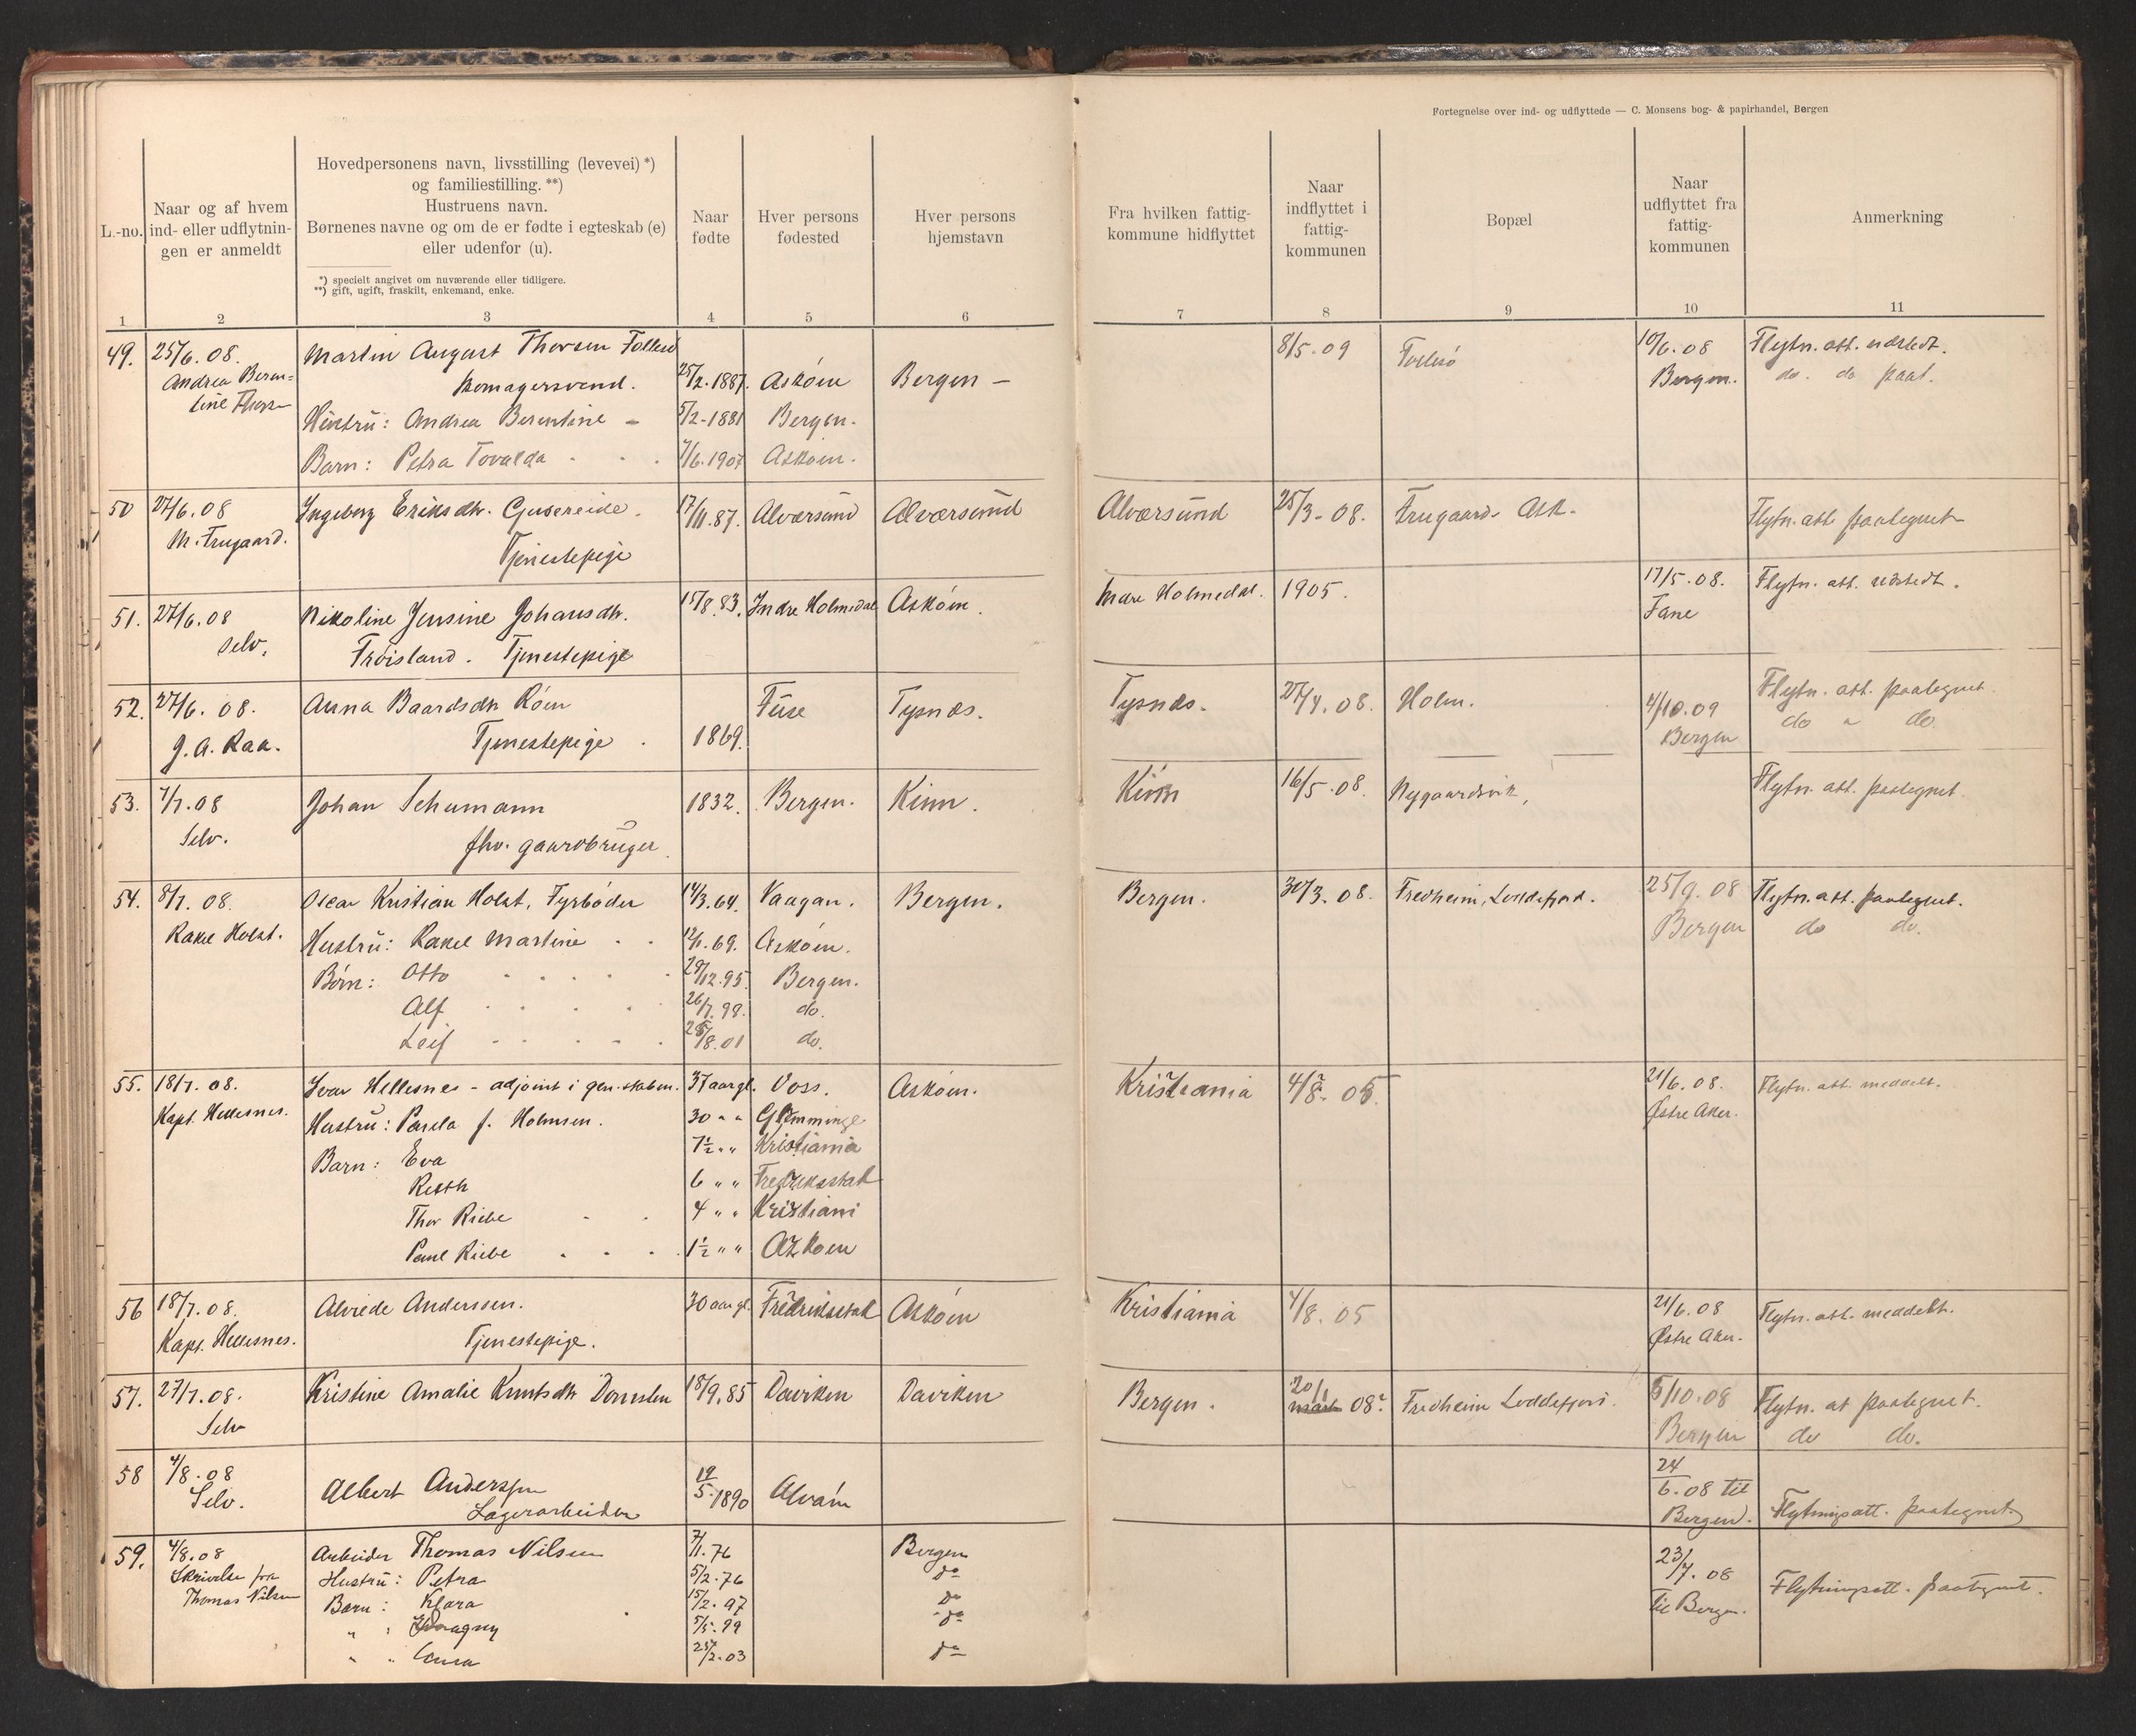 Fortegnelse over ind- og udflyttede — C. Monsens bog- & papirhandel, Bergen
L.-no.
Naar og af hvem
ind- eller udflytnin-
gen er anmeldt
Hovedpersonens navn, livsstilling (levevei) *)
og familiestilling. **)
Hustruens navn.
Børnenes navne og om de er fødte i egteskab (e)
eller udenfor (u).
*) specielt angivet om nuværende eller tidligere.
**) gift, ugift, fraskilt, enkemand, enke.
Naar
fødte
Hver persons
fødested
Hver persons
hjemstavn
Fra hvilken fattig-
kommune hidflyttet
Naar
indflyttet i
fattig-
kommunen
Bopæl
Naar
udflyttet fra
fattig-
kommunen
Anmerkning
1 2 3 4 5 6 7 8 9 10 11
49. 25/6. 08. Martin August Thorsen Follesø 8/5. 09 Follesø 10/6. 08 Flytn. att. udstedt.
Andrea Beren= 25/2. 1887. Askøen Bergen — Bergen. do. do paat.
tine Thorsen
Hustru: Andrea Berentine — 5/2-1881 Bergen.
Barn: Petra Tovalda 7/6. 1907 Askøen.
50 27/6. 08 Ingeborg Eriksdtr. 17/11. 87. Alversund Alversund Alversund 25/3. 08. Frugaard. Ask. Flytn. att. paategnet
M. Frugaard. Tjenestepige
51. 27/6. 08 Nikoline Jensine Johansdtr. 15/8. 83. Indre Holmedal Askøen. Indre Holmedal. 1905. 17/5. 08. Flytn. att. udstedt.
Selv. Frøisland. Tjenestepige Fane
52. 27/6. 08. Anna Baardsdtr Røen Fuse Tysnes. Tysnes. 27/4. 08. Holm. 4/10. 09 Flytn. att. paategnet.
J. A. Raa. Tjenestepige 1869. Bergen do do
53. 7/7. 08 Johan Schumann 1832. Bergen. Kinn. Kinn 16/5. 08. Nygaardsvik, Flytn. att. paategnet.
Selv. fhv. gaardbruger
54. 8/7. 08. Oscar Kristian Holst, Fyrbøder 14/3. 64. Vaagan. Bergen. Bergen. 30/3. 08. Fredheim, Loddefjord. 25/9. 08 Flytn. att. paategnet.
Rakel Holst. Hustru: Rakel Martine 12/1. 69. Askøen. Bergen do do.
Børn: Otto 28/12. 95. Bergen.
Alf 26/7. 98. do.
Leif 8. 01 do.
55. 18/7. 08. Ivar Hellesnes - adjoint i gen. staben. 37 aar gl. Voss. Askøen. Kristiania 4/8. 05. 21/6. 08. Flytn. att. meddelt.
Kapt. Hellesnes. Hustru: Paula f. Holmsen. 30 " " Glemminge Østre Aker.
Barn: Eva 7½ " " Kristiania
Ruth 6 " " Fredriksstad
Thor Riebe 4 " " Kristiani
Paul Riebe 1½ " " Askøen
56 18/7. 08. Alvilde Anderssen. 30 aar gl. Fredriksstad Askøen Kristiania 4/8. 05 21/6. 08 Flytn. att. meddelt.
Kapt. Hellesnes. Tjenestepige. Østre Aker.
57. 27/7. 08. Kristine Amalie Knutsdtr 18/9. 85 Daviken Daviken Bergen. 20/1 08. Fredheim Loddefjord. 5/10. 08 Flytn. at paategnet.
Selv Bergen do do.
58 4/8. 08 Albert Anderssen 19/5. 1890 24/6. 08 til
Selv. Lagerarbeider Bergen. Flytningsatt. paategnet.
59. 4/8. 08 Arbeider Thomas Nilsen 7/1. 76 Bergen 23/7. 08
Skrivelse fra Hustru: Petra 5/2. 76 do Flytningsatt. paategnet.
Thomas Nilsen Barn: Klara 15/2. 97 do til Bergen.
" " Dagny 5/5. 99 do
" " Laura 25/2. 03 do